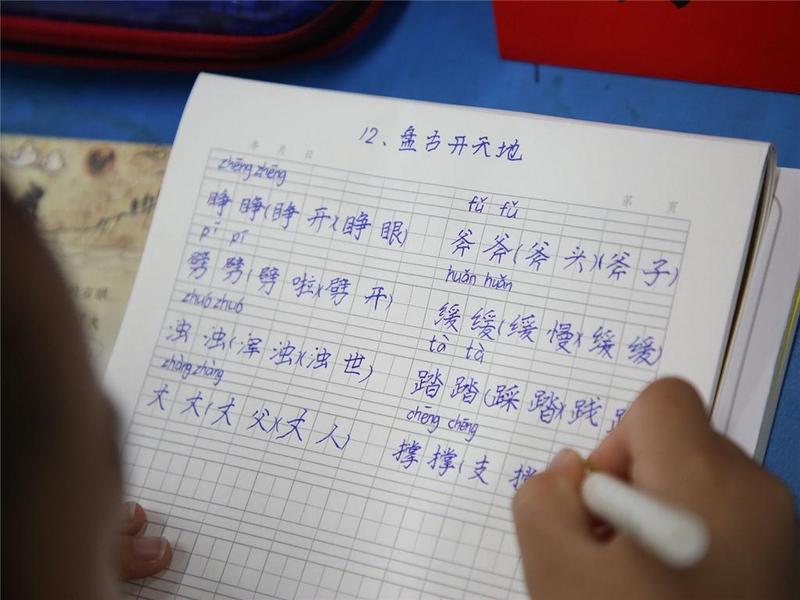 12、盘古开天地
年 月 日
第 页
zhēng zhēng
睁 睁(睁 开)(睁 眼)
fǔ fǔ
斧 斧(斧 头)(斧 子)
pī pī
劈 劈(劈 啦)(劈 开)
huǎn huǎn
缓 缓(缓 慢)(缓 缓)
zhuó zhuó
浊 浊(浑 浊)(浊 世)
tà tà
踏 踏(踩 踏)(践
zhàng zhàng
丈 丈(丈 父)(丈 人)
chēng chēng
撑 撑(支